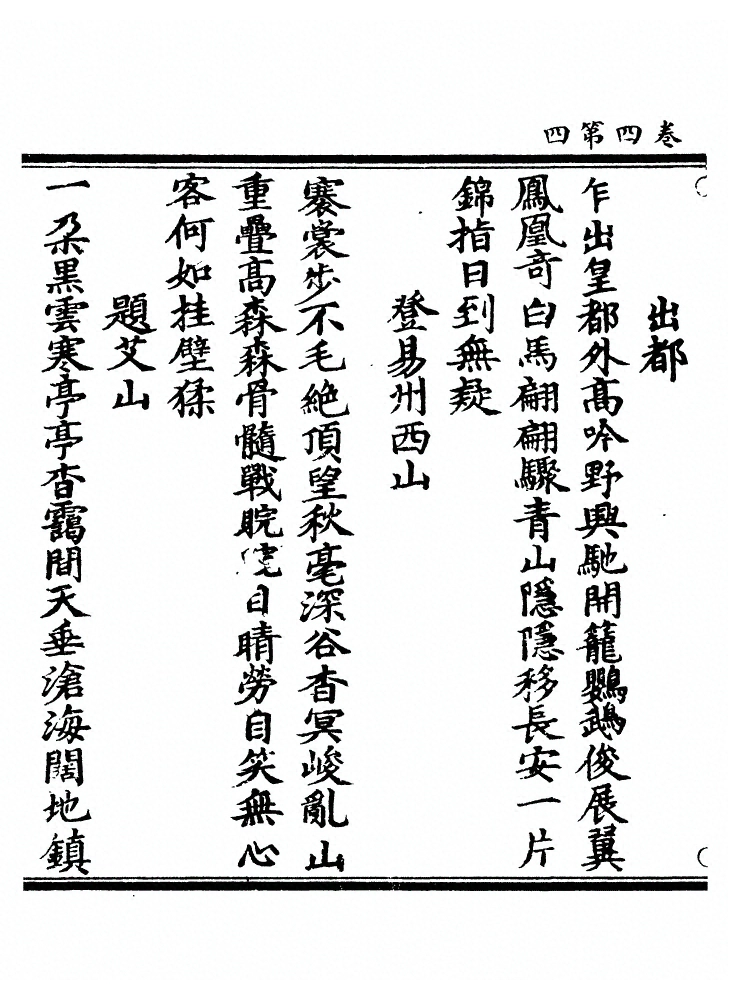 卷四第四
出都
乍出皇都外高吟野興馳開籠鸚鵡俊展翼
鳳凰奇白馬翩翩驟青山隱隱移長安一片
錦指日到無疑
登易州西山
褰裳步不毛絕頂望秋毫深谷杳冥峻亂山
重疊高森森骨髓戰睆日晴勞自笑無心
客何如挂壁猱
題艾山
一朵黑雲寒亭亭杳靄間天垂滄海闊地鎮